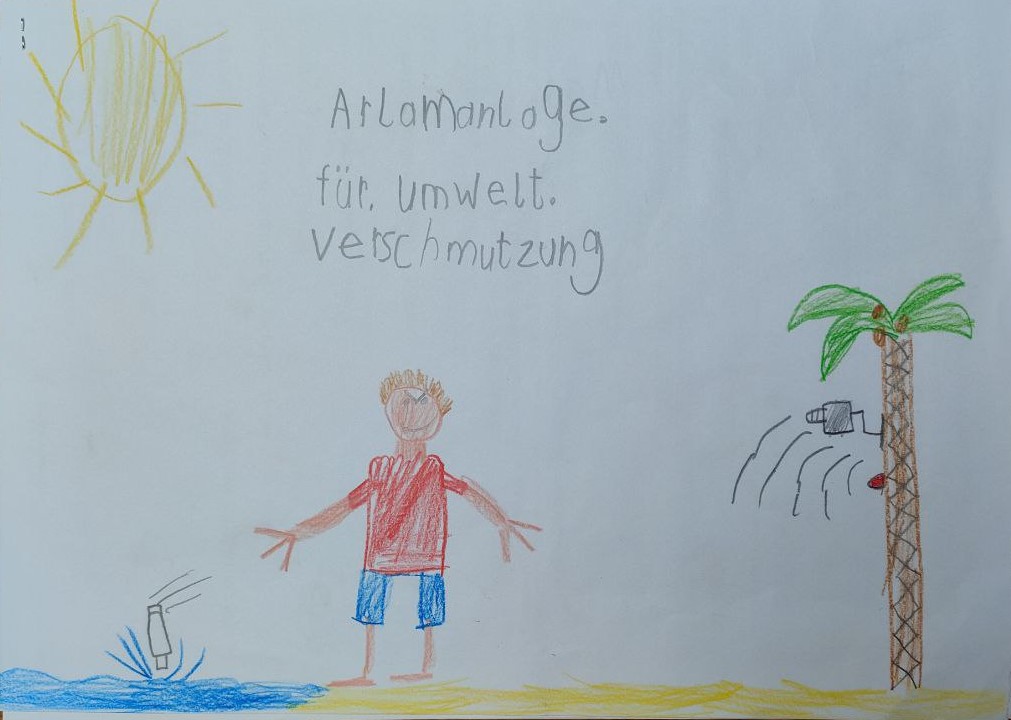 Arlamanlage.
für. umwelt.
verschmutzung